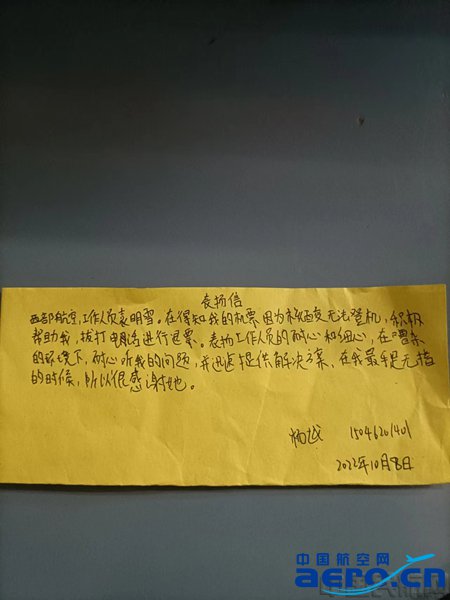 表扬信
西部航空,工作人员袁明雪。在得知我的机票因为核酸变无法登机,积极
帮助我,拨打电话进行退票。表扬工作人员的耐心和细心,在嘈杂
的环境下,耐心听我的问题,并迅速提供解决方案,在我最手足无措
的时候,所以很感谢她。
杨越 15046201401
2022年10月8日
中国航空网
aero.cn